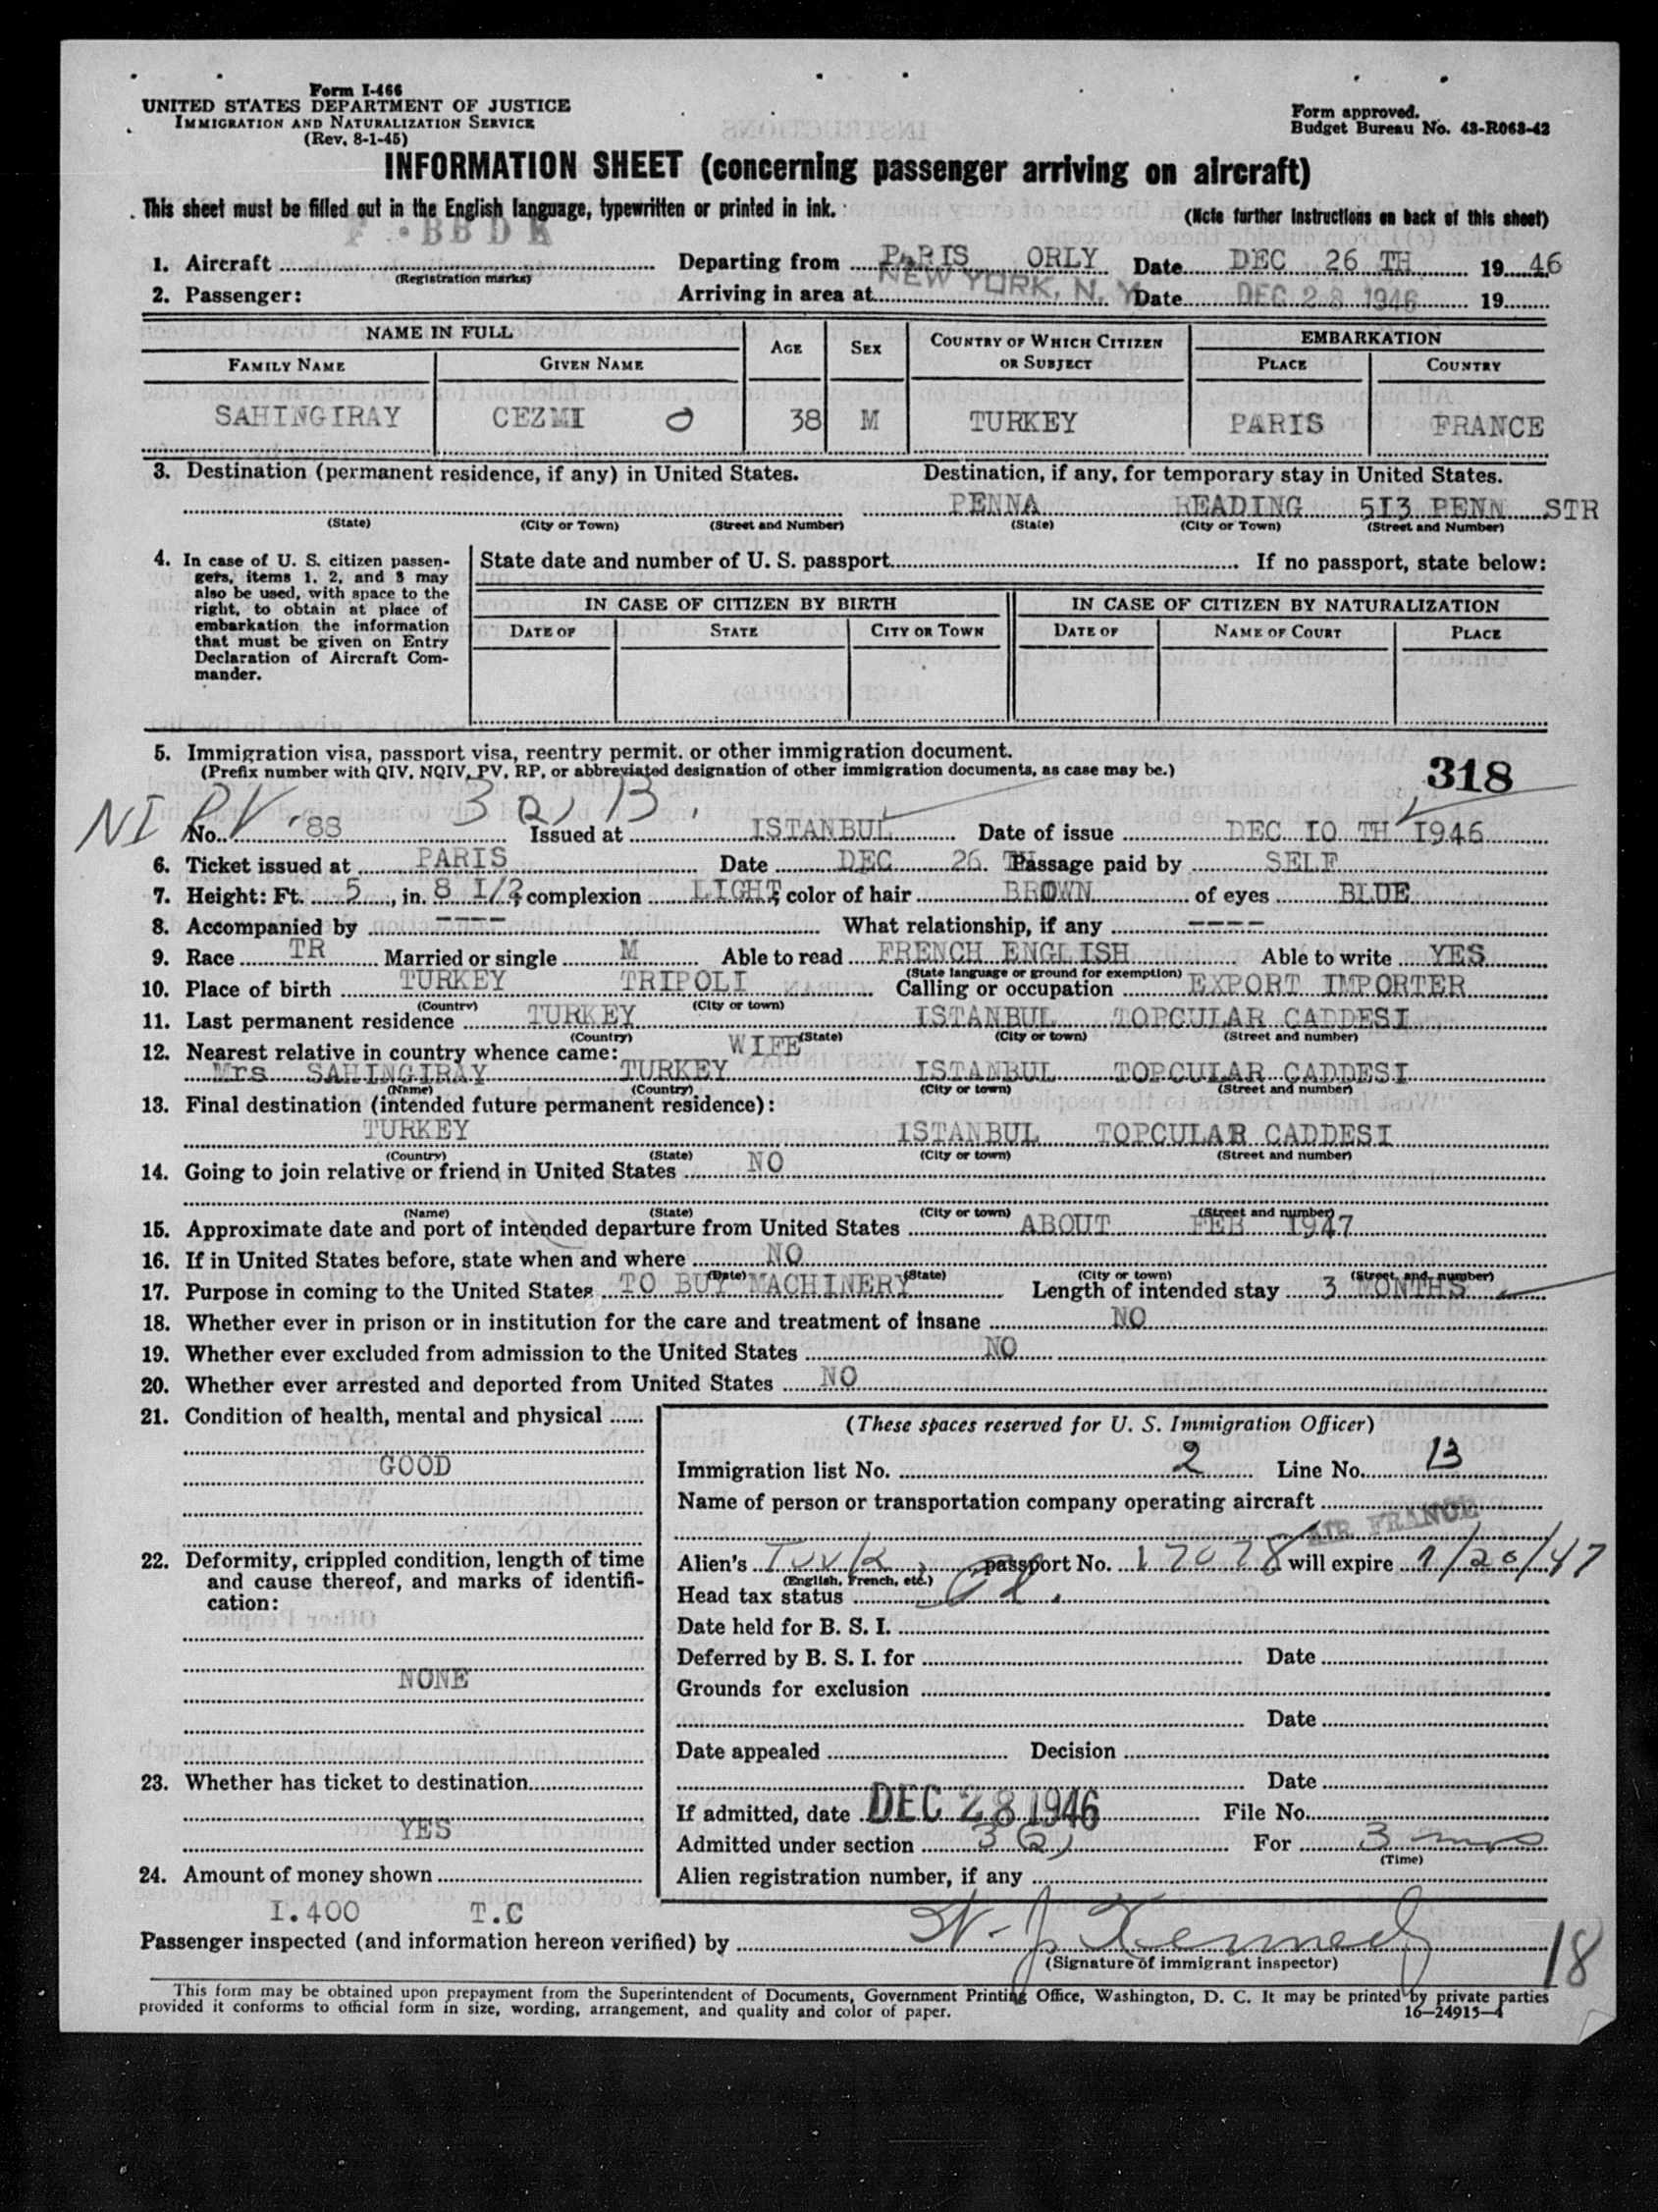 Form I-466
UNITED STATES DEPARTMENT OF JUSTICE
IMMIGRATION AND NATURALIZATION SERVICE
(Rev. 8-1-45)
Form approved.
Budget Bureau No. 43-R063-42
INFORMATION SHEET (concerning passenger arriving on aircraft)
This sheet must be filled out in the English language, typewritten or printed in ink.
(Note further instructions on back of this sheet)
F·BBDK
1. Aircraft (Registration marks) Departing from PARIS ORLY Date DEC 26 TH 1946
2. Passenger: Arriving in area at NEW YORK, N. Y. Date DEC 28 1946 19
NAME IN FULL AGE SEX COUNTRY OF WHICH CITIZEN OR SUBJECT EMBARKATION
FAMILY NAME GIVEN NAME PLACE COUNTRY
SAHINGIRAY CEZMI O 38 M TURKEY PARIS FRANCE
3. Destination (permanent residence, if any) in United States. Destination, if any, for temporary stay in United States.
PENNA READING 513 PENN STR
(State) (City or Town) (Street and Number) (State) (City or Town) (Street and Number)
4. In case of U. S. citizen passengers, items 1, 2, and 3 may also be used, with space to the right, to obtain at place of embarkation the information that must be given on Entry Declaration of Aircraft Commander.
State date and number of U. S. passport If no passport, state below:
IN CASE OF CITIZEN BY BIRTH IN CASE OF CITIZEN BY NATURALIZATION
DATE OF STATE CITY OR TOWN DATE OF NAME OF COURT PLACE
5. Immigration visa, passport visa, reentry permit, or other immigration document.
(Prefix number with QIV, NQIV, PV, RP, or abbreviated designation of other immigration documents, as case may be.)
318
NI PV 3 2) B
No. 88 Issued at ISTANBUL Date of issue DEC 10 TH 1946
6. Ticket issued at PARIS Date DEC 26. TH Passage paid by SELF
7. Height: Ft. 5, in. 8 1/2 complexion LIGHT, color of hair BROWN of eyes BLUE
8. Accompanied by ---- What relationship, if any ----
9. Race TR Married or single M Able to read FRENCH ENGLISH Able to write YES
(State language or ground for exemption)
10. Place of birth TURKEY TRIPOLI Calling or occupation EXPORT IMPORTER
(Country) (City or town)
11. Last permanent residence TURKEY ISTANBUL TOPCULAR CADDESI
(Country) (State) (City or town) (Street and number)
12. Nearest relative in country whence came: WIFE
Mrs SAHINGIRAY TURKEY ISTANBUL TOPCULAR CADDESI
(Name) (Country) (City or town) (Street and number)
13. Final destination (intended future permanent residence):
TURKEY ISTANBUL TOPCULAR CADDESI
(Country) (State) (City or town) (Street and number)
14. Going to join relative or friend in United States NO
(Name) (State) (City or town) (Street and number)
15. Approximate date and port of intended departure from United States ABOUT FEB 1947
16. If in United States before, state when and where NO
(Date) (State) (City or town) (Street and number)
17. Purpose in coming to the United States TO BUY MACHINERY Length of intended stay 3 MONTHS
18. Whether ever in prison or in institution for the care and treatment of insane NO
19. Whether ever excluded from admission to the United States NO
20. Whether ever arrested and deported from United States NO
21. Condition of health, mental and physical
GOOD
22. Deformity, crippled condition, length of time and cause thereof, and marks of identification:
NONE
23. Whether has ticket to destination
YES
24. Amount of money shown
1.400 T.C
(These spaces reserved for U. S. Immigration Officer)
Immigration list No. 2 Line No. 13
Name of person or transportation company operating aircraft
AIR FRANCE
Alien's Turk passport No. 17078 will expire 1/20/47
(English, French, etc.)
Head tax status
Date held for B. S. I.
Deferred by B. S. I. for Date
Grounds for exclusion
Date
Date appealed Decision
Date
If admitted, date DEC 28 1946 File No.
Admitted under section 3(2) For 3 mos
(Time)
Alien registration number, if any
Passenger inspected (and information hereon verified) by W. J. Kennedy
(Signature of immigrant inspector)
18
This form may be obtained upon prepayment from the Superintendent of Documents, Government Printing Office, Washington, D. C. It may be printed by private parties
provided it conforms to official form in size, wording, arrangement, and quality and color of paper.
16—24915-1